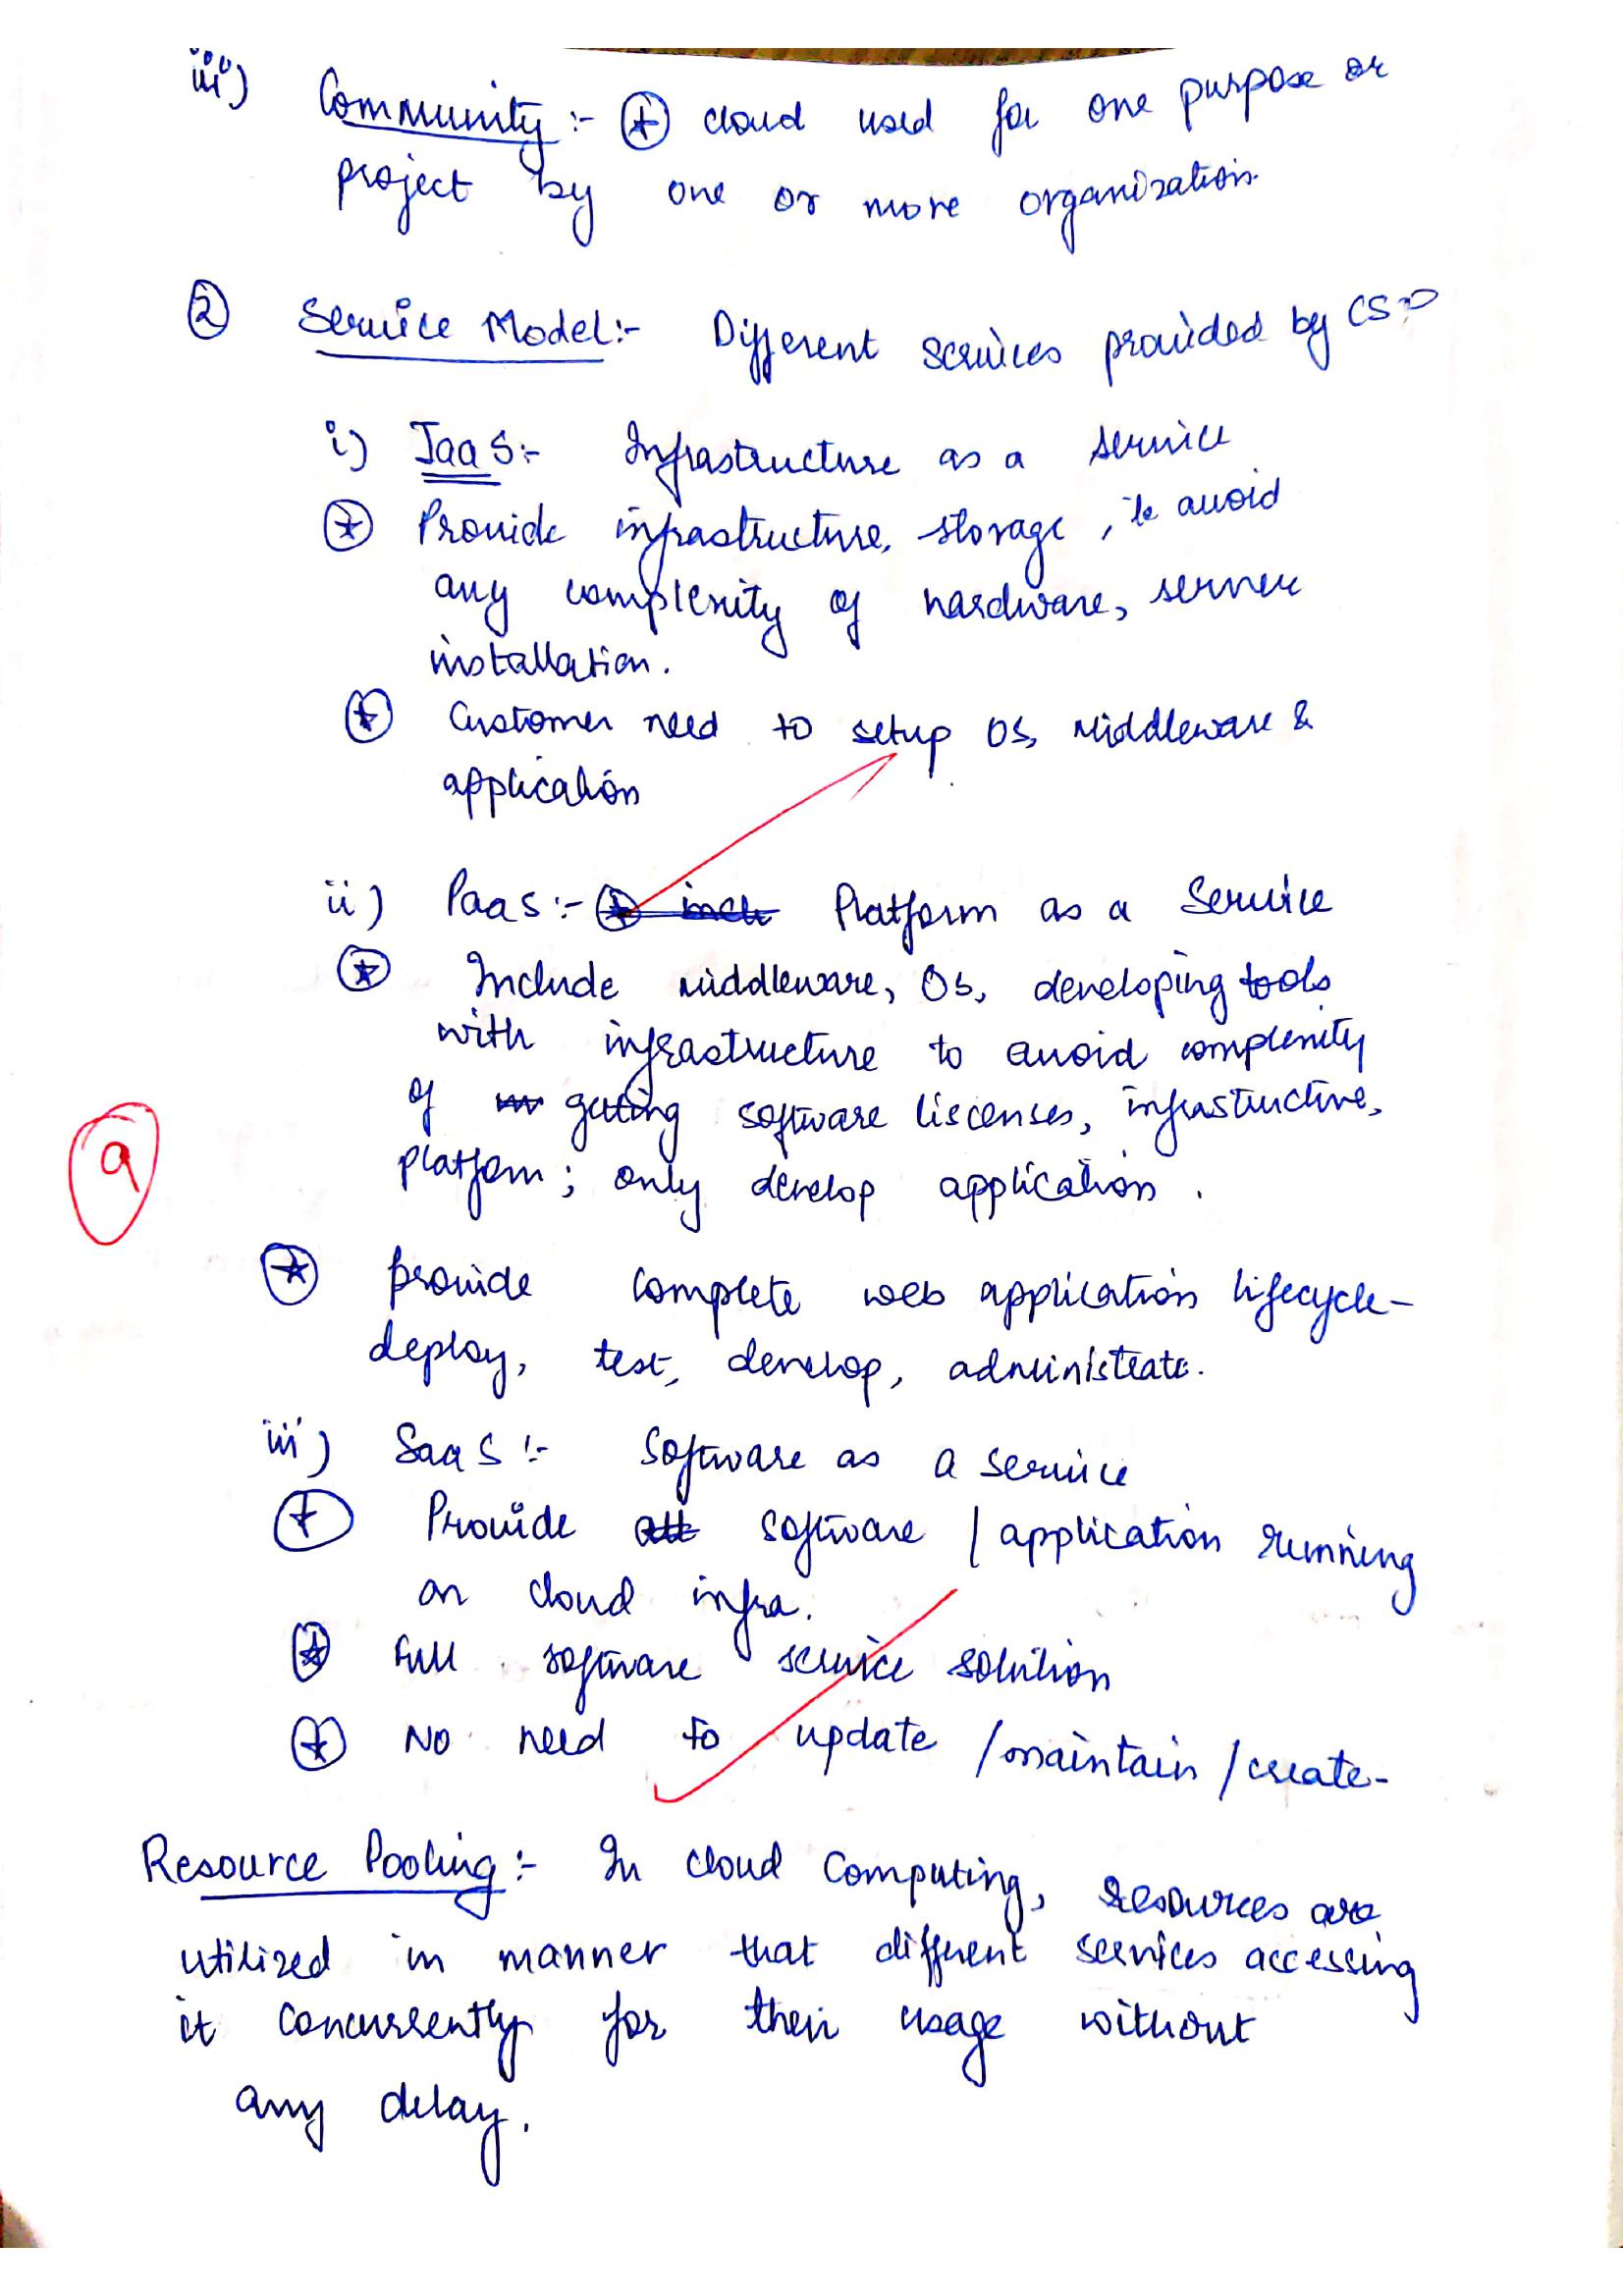 iii) Community :- ⊛ cloud used for one purpose or
project by one or more organization.
② Service Model:- Different services provided by CSP
i) IaaS:- Infrastructure as a service
⊛ Provide infrastructure, storage, to avoid
any complexity of hardware, server
installation.
⊛ Customer need to setup OS, Middleware &
application
ii) PaaS:- Platform as a Service
⊛ Include middleware, OS, developing tools
with infrastructure to avoid complexity
of getting software liscenses, infrastructure,
platform; only develop application.
9
⊛ provide complete web application lifecycle-
deploy, test, develop, administrate.
iii) SaaS:- Software as a service
⊛ Provide software / application running
on cloud infra.
⊛ Full software service solution
⊛ No need to update /maintain /create-
Resource Pooling:- In cloud Computing, resources are
utilized in manner that different services accessing
it concurrently for their usage without
any delay.